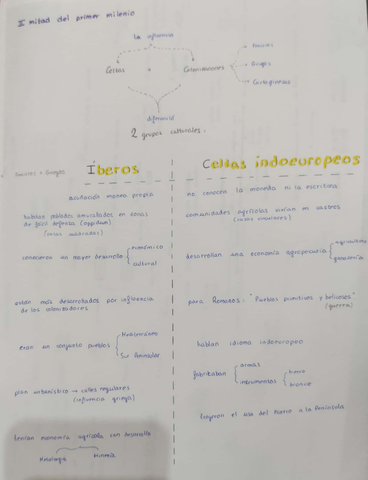 I mitad del primer milenio
la influencia
Celtas y Colonizaciones
Fenicios
Griegos
Cartagineses
diferenció
2 grupos culturales.
Fenicios + Griegos
Íberos
acuñación moneda propia
habitan poblados amurallados en zonas
de fácil defensa (oppidum)
(casas cuadradas)
conocieron un mayor desarrollo
económico
cultural
están más desarrollados por influencia
de los colonizadores
eran un conjunto pueblos
Mediterráneo
Sur Peninsular
plan urbanístico → calles regulares
(influencia griega)
tenían economía agrícola con desarrollo
Metalurgia
Minería
Celtas indoeuropeos
no conocen la moneda ni la escritura
comunidades agrícolas vivían en castros
(casas circulares)
desarrollan una economía agropecuaria
agricultura
ganadería
para Romanos: "Pueblos primitivos y belicosos"
(guerra)
hablan idioma indoeuropeo
fabricaban
armas
instrumentos
hierro
bronce
trajeron el uso del hierro a la Península